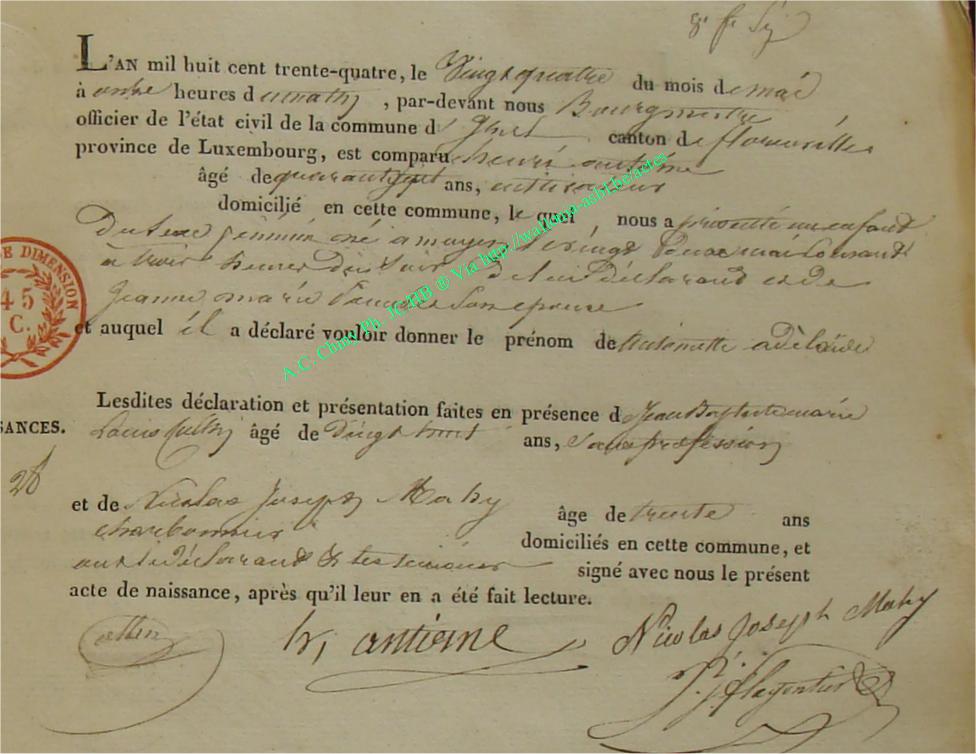 L'AN mil huit cent trente-quatre, le Vingt quatre du mois de mai
à onze heures du matin, par-devant nous Bourgmestre
officier de l'état civil de la commune d canton de florenville
province de Luxembourg, est comparu henri antoine
âgé de quarante ans, cultivateur
domicilié en cette commune, le quel nous a présenté un enfant
Du Sexe féminin né a moyen le vingt Deux mai Courant
a trois heures du Soir De lui Déclarant et de
Jeanne marie Son epouse
et auquel il a déclaré vouloir donner le prénom de adelaïde
Lesdites déclaration et présentation faites en présence d Jean Baptiste marie
SANCES. Louis âgé de Vingt ans, Sans profession
28
et de Nicolas Joseph Mahy âge de trente ans
charbonnier domiciliés en cette commune, et
Déclarant & les témoins signé avec nous le présent
acte de naissance, après qu'il leur en a été fait lecture.
h, antoine Nicolas Joseph Mahy
E DIMENSION
45
C.
A.C. Chiny Ph. JCHB ® Via http://waltemp-asbl.be/actes